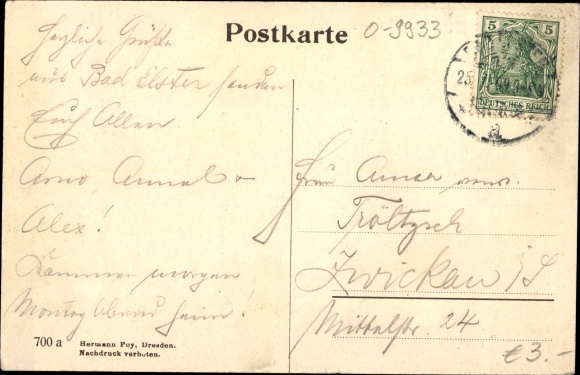 Postkarte
O-9933
5
5
DEUTSCHES REICH
25.
a
Herzliche Grüße
aus Bad Elster senden
Euch Allen
Arno, Anna
Alex!
Kommen morgen
Montag Abend heim!
Frau Anna verw.
Tröltzsch
Zwickau i/S
Mittelstr. 24
700 a
Hermann Poy, Dresden.
Nachdruck verboten.
€ 3.-